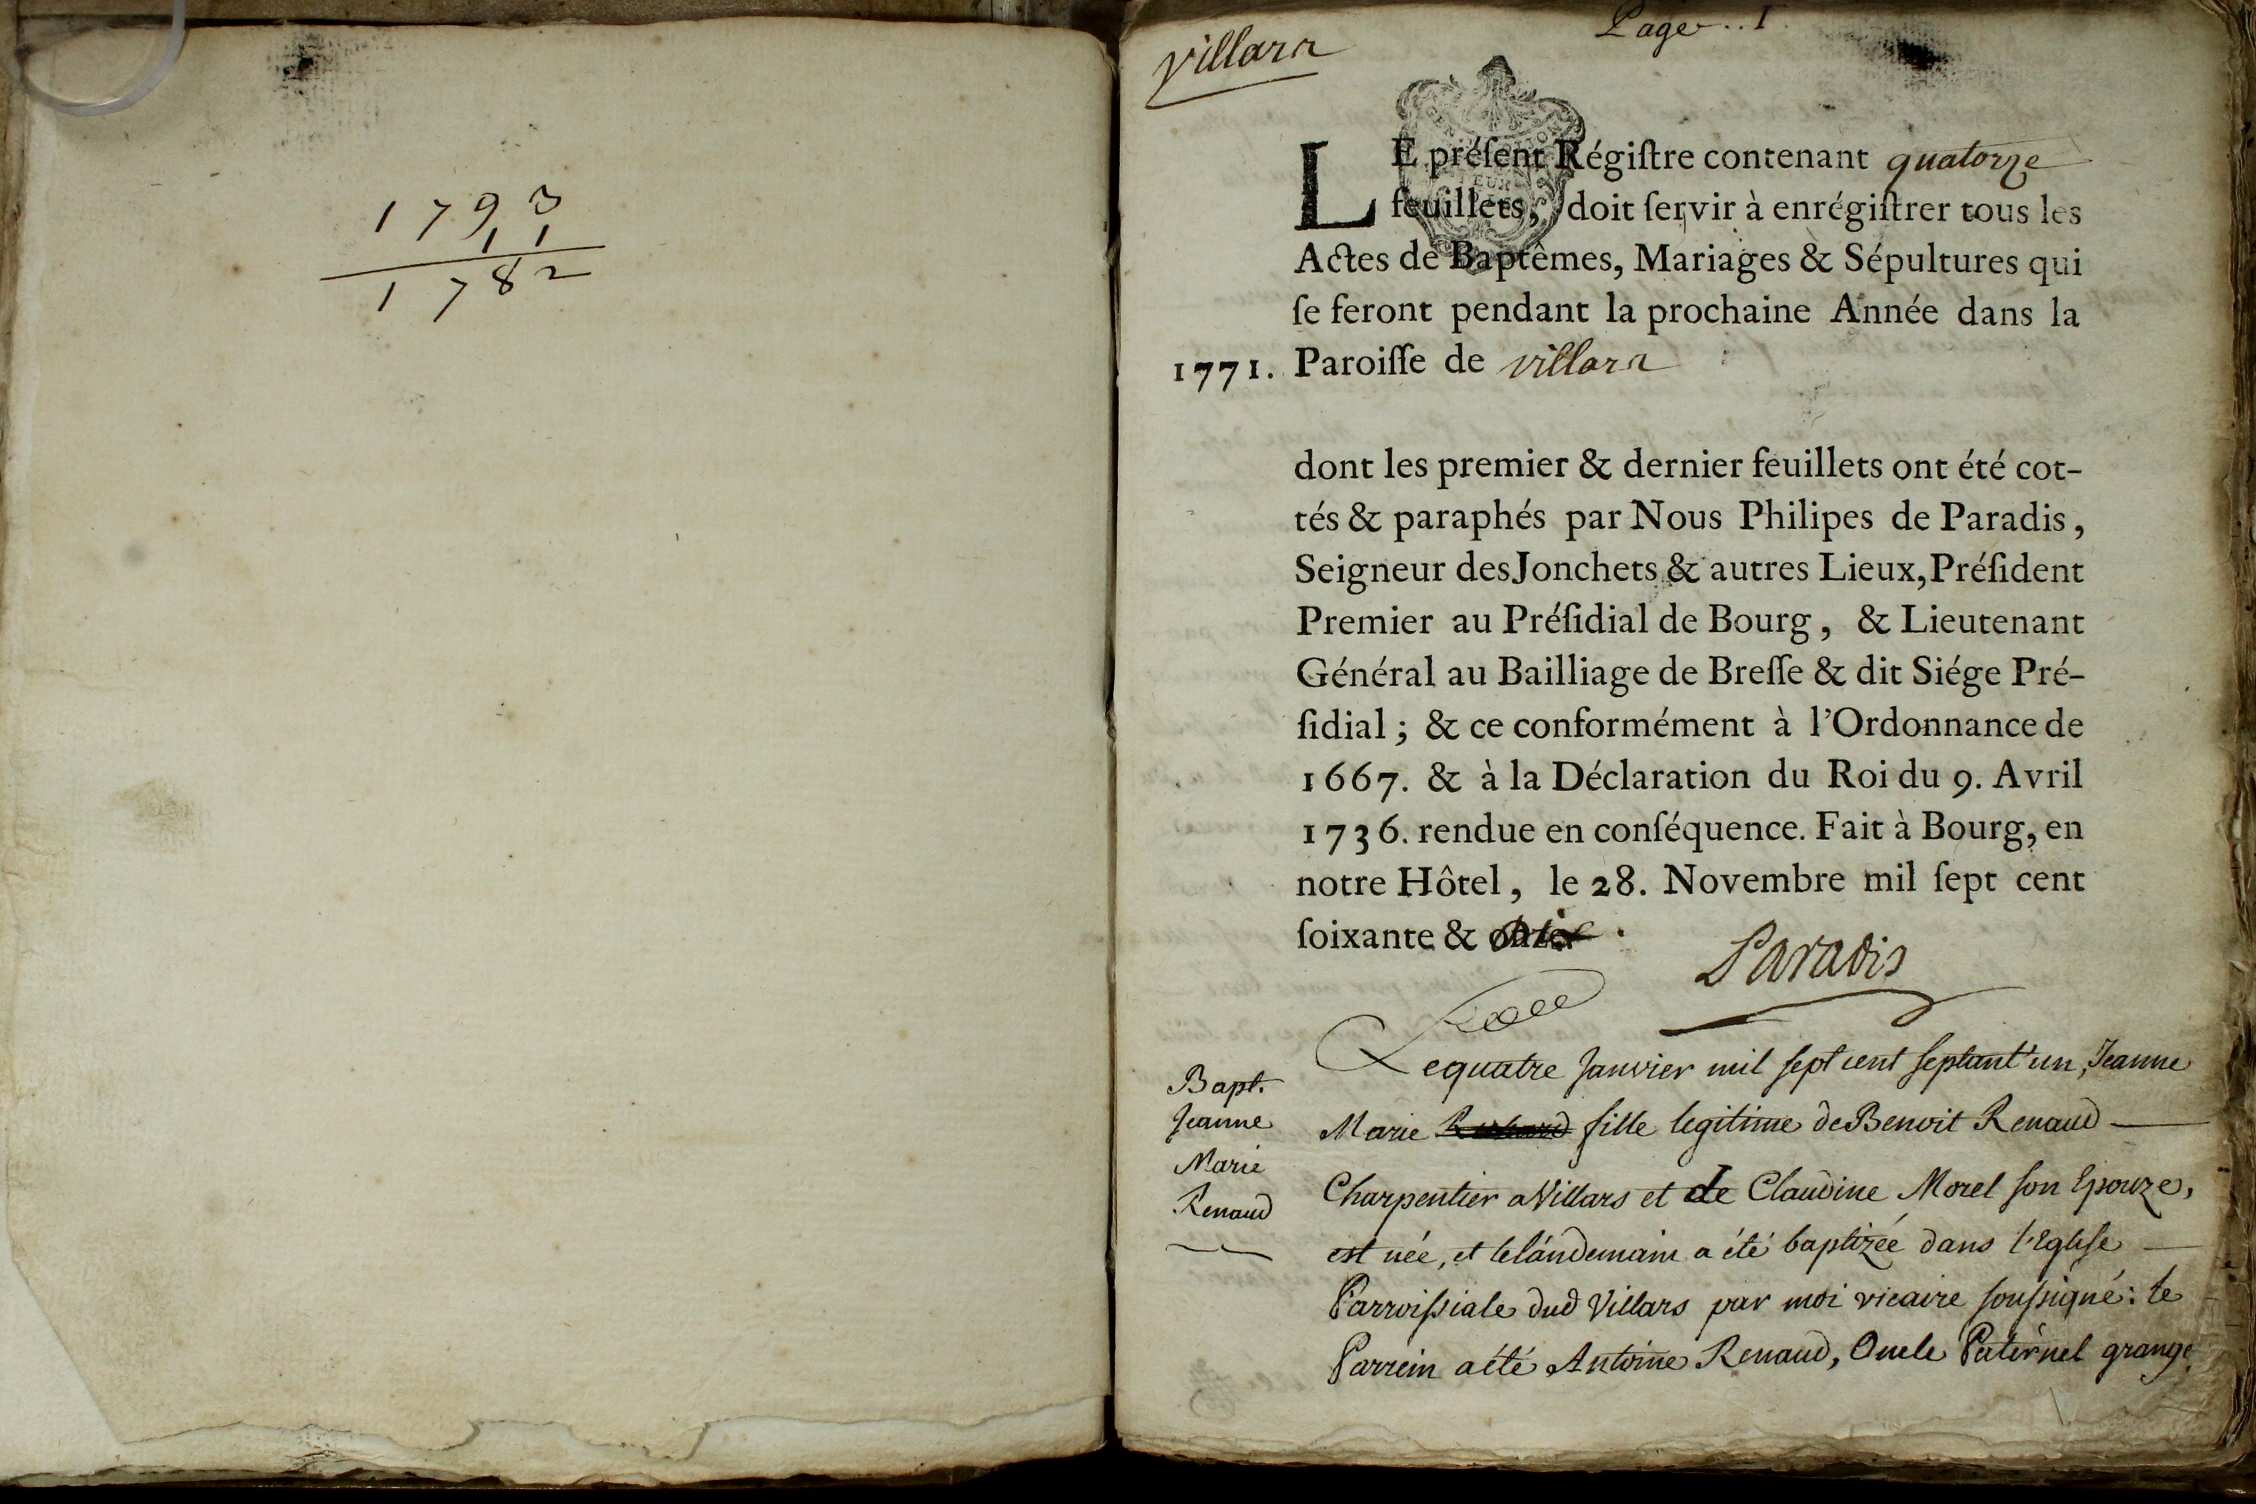 1793
11
1782
Page .. 1
Villars
LE préſent Régiſtre contenant quatorze
feuillets, doit ſervir à enrégiſtrer tous les
Actes de Baptêmes, Mariages & Sépultures qui
ſe feront pendant la prochaine Année dans la
1771. Paroiſſe de villars
dont les premier & dernier feuillets ont été cot-
tés & paraphés par Nous Philipes de Paradis,
Seigneur des Jonchets & autres Lieux, Préſident
Premier au Préſidial de Bourg, & Lieutenant
Général au Bailliage de Breſſe & dit Siége Pré-
ſidial; & ce conformément à l'Ordonnance de
1667. & à la Déclaration du Roi du 9. Avril
1736. rendue en conſéquence. Fait à Bourg, en
notre Hôtel, le 28. Novembre mil ſept cent
ſoixante &
Paradis
Bapt.
Jeanne
Marie
Renaud
Le quatre Janvier mil sept cent septant'un, Jeanne
Marie fille legitime de Benoit Renaud
Charpentier a Villars et de Claudine Morel son Epouze,
est née, et le landemain a été baptizée dans l'Eglise
Parroissiale dud Villars par moi vicaire soussigné: le
Parrein a été Antoine Renaud, Oncle Paternel grange